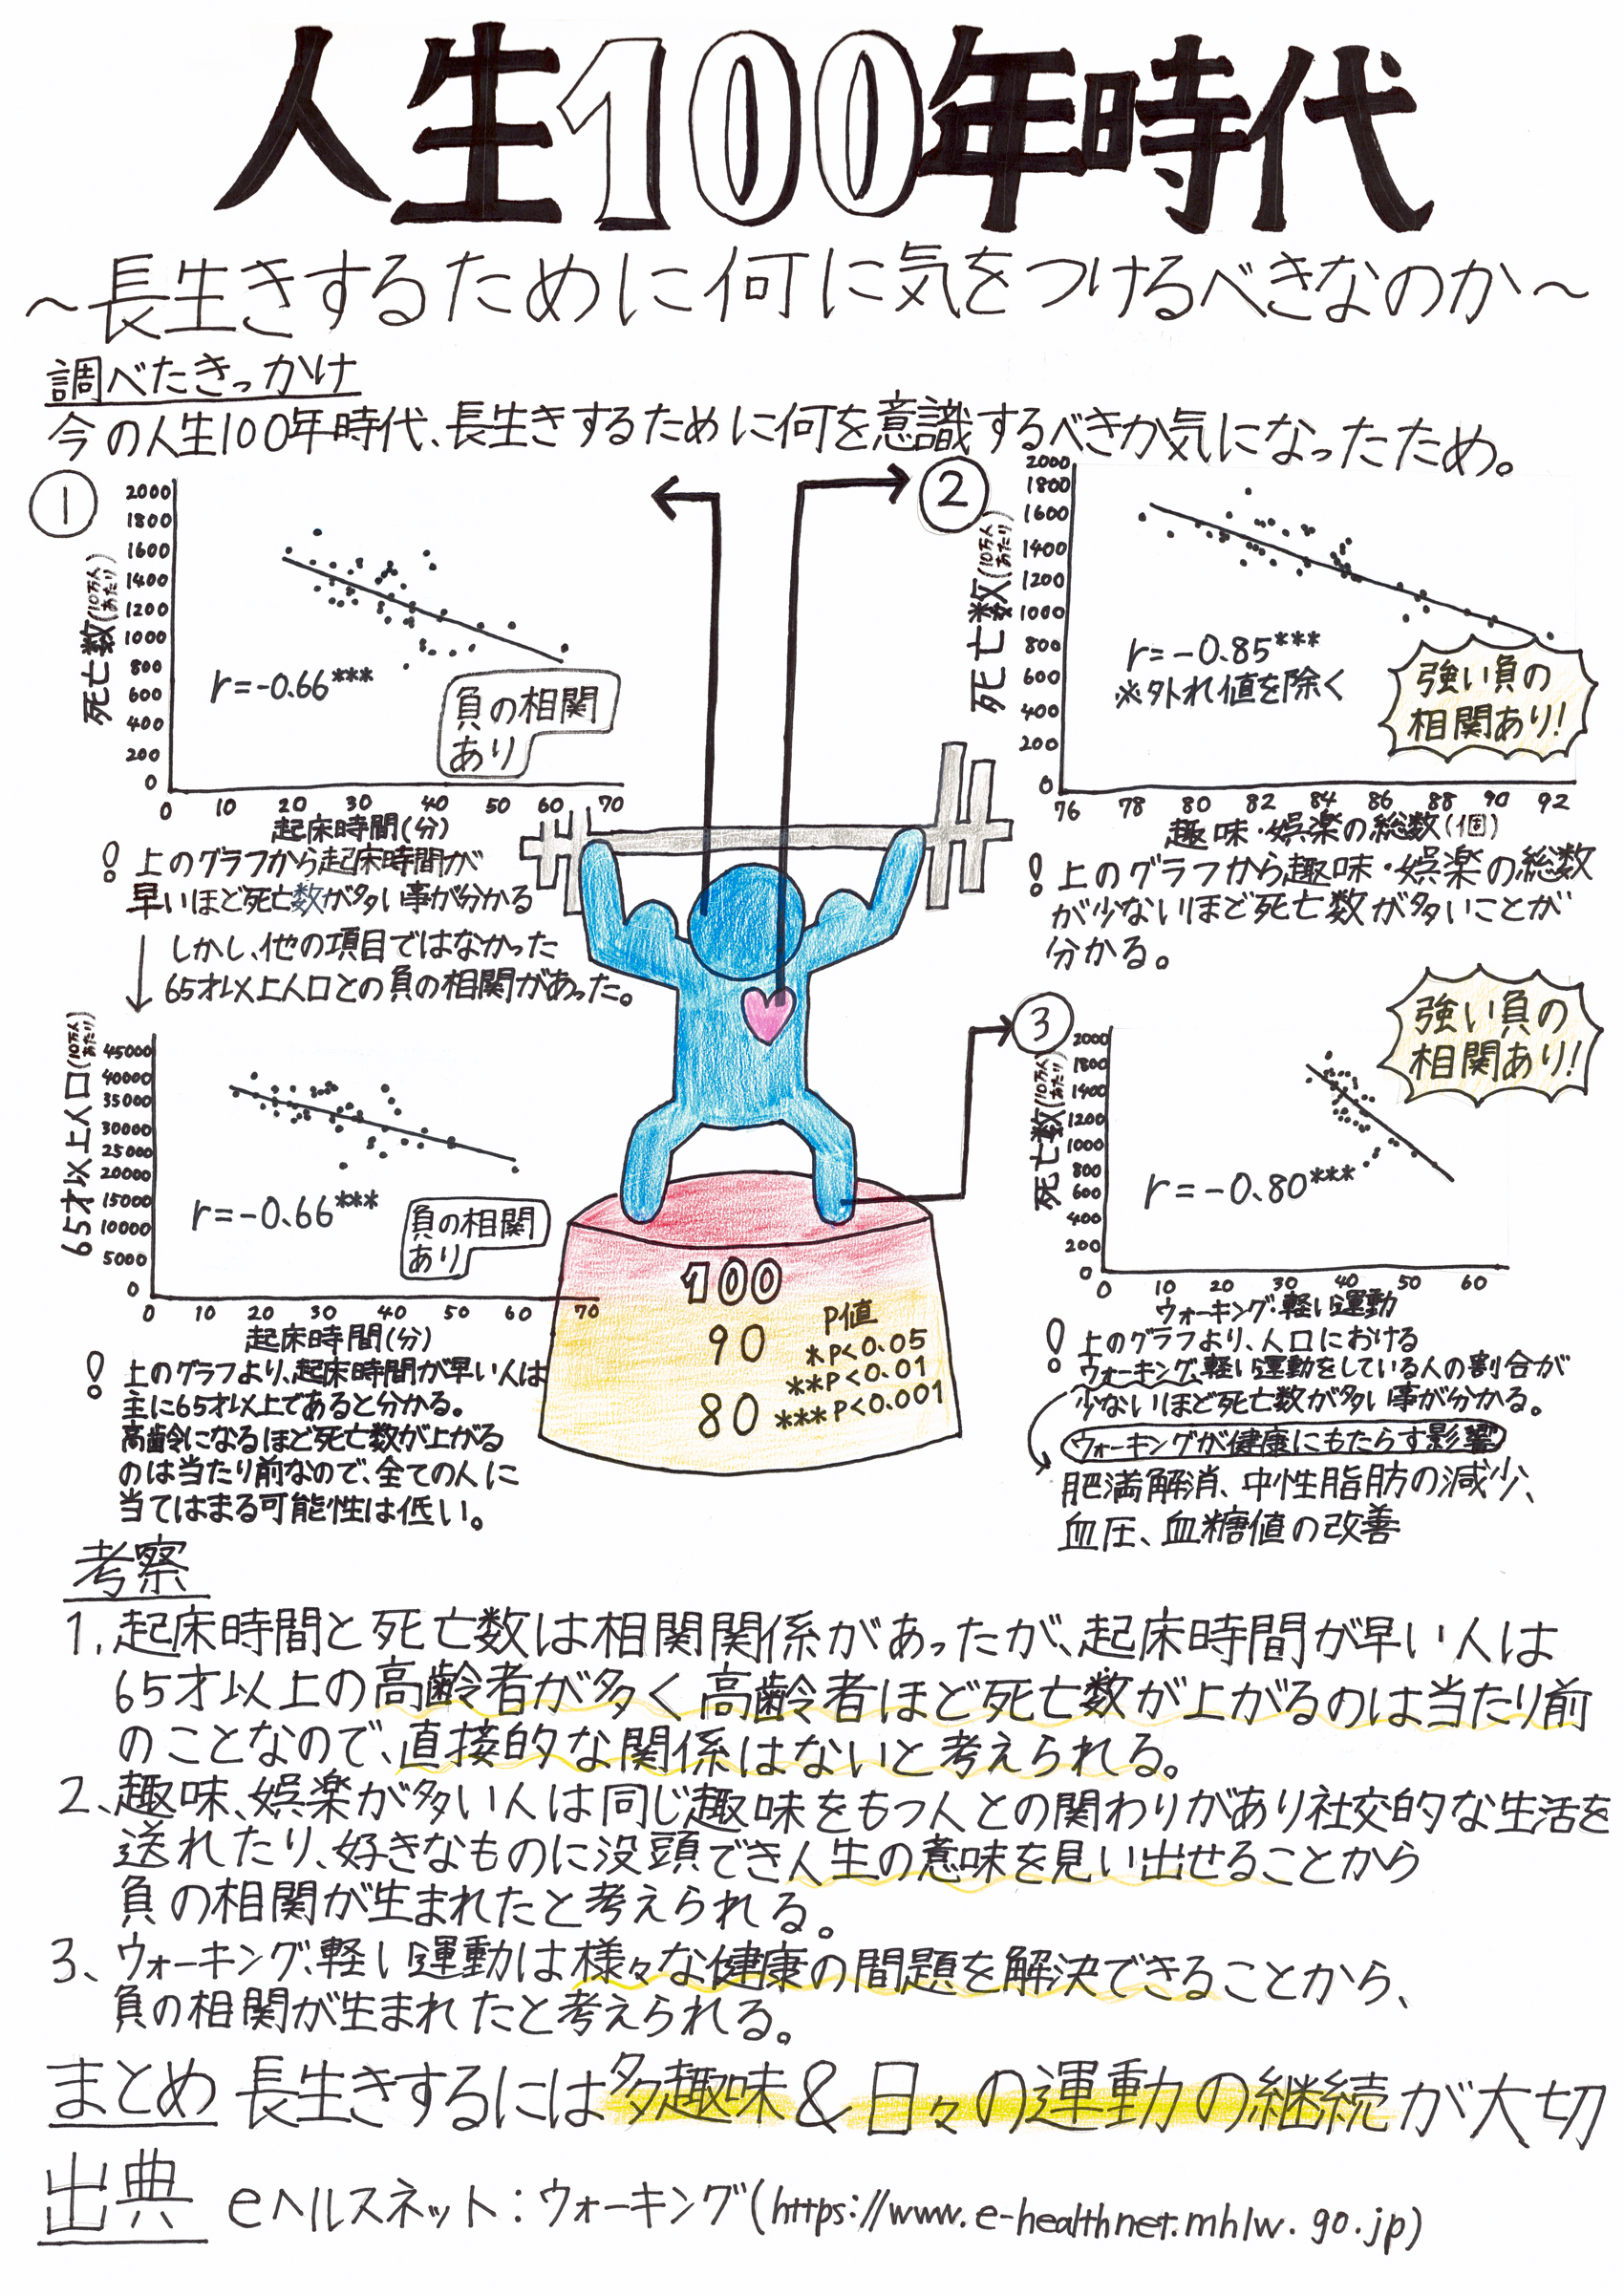 人生100年時代
～長生きするために何に気をつけるべきなのか～
調べたきっかけ
今の人生100年時代、長生きするために何を意識するべきか気になったため。
①
死亡数(10万人あたり)
2000
1800
1600
1400
1200
1000
800
600
400
200
0
r=-0.66***
負の相関
あり
0 10 20 30 40 50 60 70
起床時間(分)
! 上のグラフから起床時間が
早いほど死亡数が多い事が分かる
しかし、他の項目ではなかった
65才以上人口との負の相関があった。
65才以上人口(10万人あたり)
45000
40000
35000
30000
25000
20000
15000
10000
5000
0
r=-0.66***
負の相関
あり
0 10 20 30 40 50 60 70
起床時間(分)
! 上のグラフより、起床時間が早い人は
主に65才以上であると分かる。
高齢になるほど死亡数が上がる
のは当たり前なので、全ての人に
当てはまる可能性は低い。
②
死亡数(10万人あたり)
2000
1800
1600
1400
1200
1000
800
600
400
200
0
r=-0.85***
※外れ値を除く
強い負の
相関あり!
76 78 80 82 84 86 88 90 92
趣味・娯楽の総数(個)
! 上のグラフから趣味・娯楽の総数
が少ないほど死亡数が多いことが
分かる。
③
死亡数(10万人あたり)
2000
1800
1400
1200
1000
800
600
400
200
0
r=-0.80***
強い負の
相関あり!
0 10 20 30 40 50 60
ウォーキング・軽い運動
! 上のグラフより、人口における
ウォーキング、軽い運動をしている人の割合が
少ないほど死亡数が多い事が分かる。
ウォーキングが健康にもたらす影響
肥満解消、中性脂肪の減少、
血圧、血糖値の改善
100
90
80
P値
*P<0.05
**P<0.01
***P<0.001
考察
1、起床時間と死亡数は相関関係があったが、起床時間が早い人は
65才以上の高齢者が多く高齢者ほど死亡数が上がるのは当たり前
のことなので、直接的な関係はないと考えられる。
2、趣味、娯楽が多い人は同じ趣味をもつ人との関わりがあり社交的な生活を
送れたり、好きなものに没頭でき人生の意味を見い出せることから
負の相関が生まれたと考えられる。
3、ウォーキング、軽い運動は様々な健康の問題を解決できることから、
負の相関が生まれたと考えられる。
まとめ 長生きするには多趣味&日々の運動の継続が大切
出典 eヘルスネット:ウォーキング(https://www.e-healthnet.mhlw.go.jp)